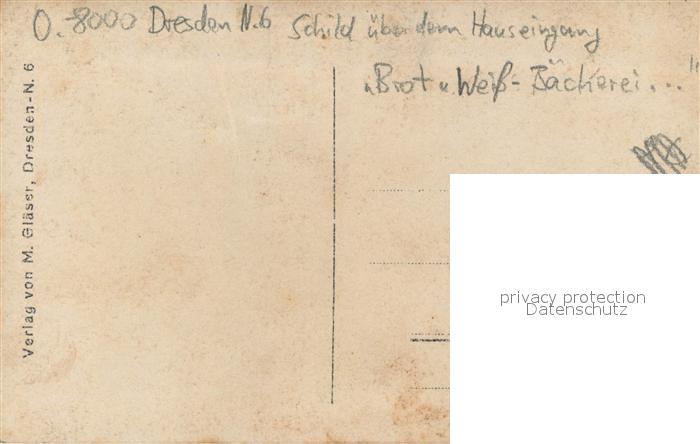 O.-8000 Dresden N.6 Schild über dem Hauseingang
„Brot u Weiß-Bäckerei..."
Verlag von M. Gläser, Dresden-N. 6
privacy protection
Datenschutz